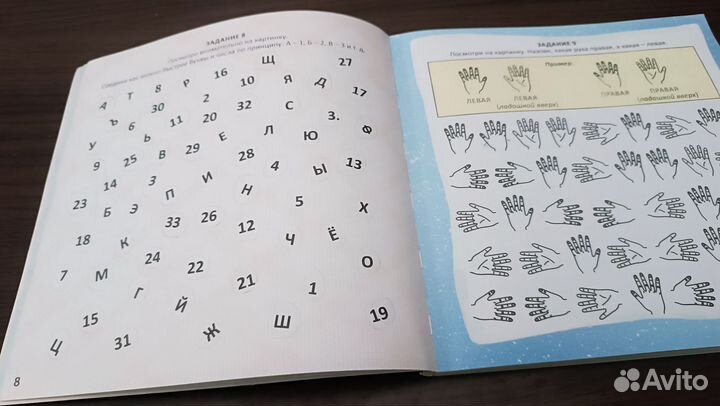 ЗАДАНИЕ 8
Посмотри внимательно на картинку.
Соедини как можно быстрее буквы и числа по принципу: А – 1, Б – 2, В – 3 и т. д.
А Т 8 Р 16 Щ 27
Ъ 30 2 10 Я Д 17
У 6 Ь 11 20 32 С З. Ф
9 25 В 29 Е Л Ю
23 14 3 И 28 4 Ы 13
Б Э П Н 5
18 К 33 26 12 Ч Ё Х
7 М 24 22 О
15 Г Й 21 1 19
Ц 31 Ж Ш
8
ЗАДАНИЕ 9
Посмотри на картинку. Назови, какая рука правая, а какая – левая.
Пример:
ЛЕВАЯ ЛЕВАЯ ПРАВАЯ ПРАВАЯ
(ладошкой вверх) (ладошкой вверх)
Avito